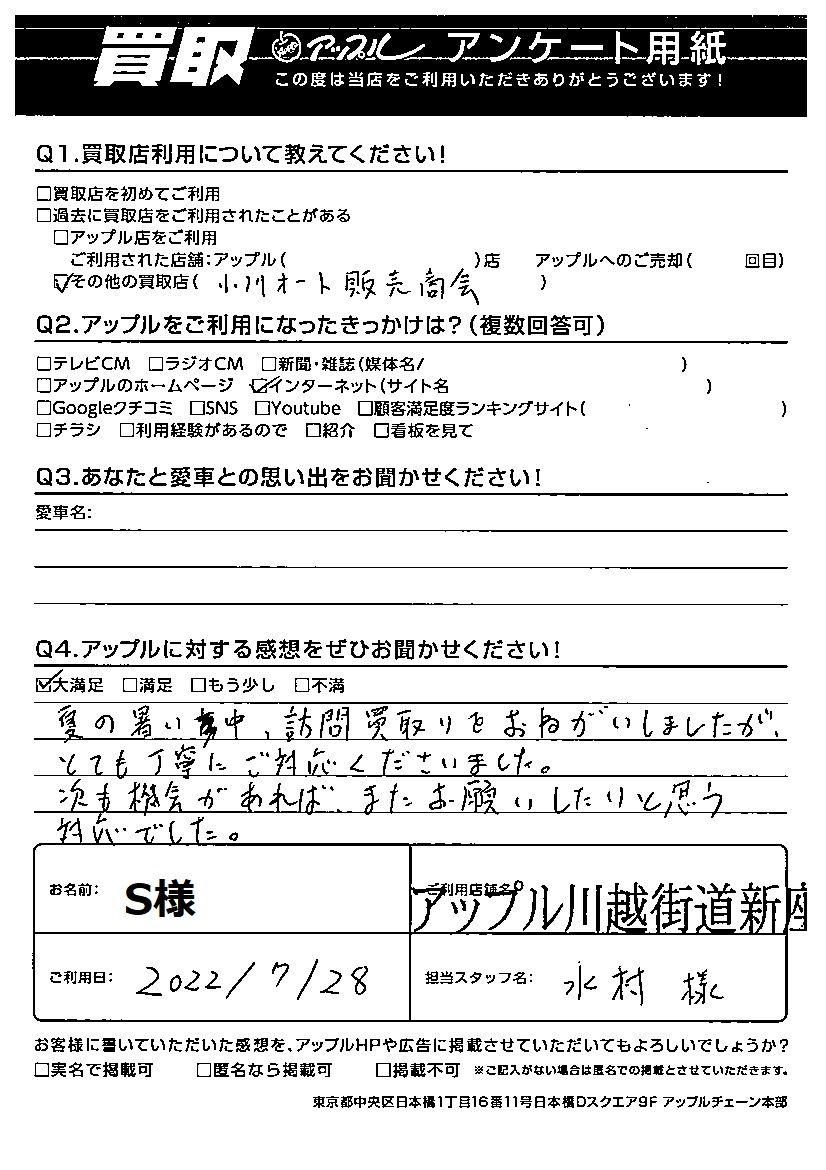 買取 アップル アンケート用紙
この度は当店をご利用いただきありがとうございます!
Q1.買取店利用について教えてください!
□買取店を初めてご利用
□過去に買取店をご利用されたことがある
□アップル店をご利用
ご利用された店舗:アップル( )店 アップルへのご売却( 回目)
☑その他の買取店( 小川オート販売商会 )
Q2.アップルをご利用になったきっかけは?(複数回答可)
□テレビCM □ラジオCM □新聞・雑誌(媒体名/ )
□アップルのホームページ ☑インターネット(サイト名 )
□Googleクチコミ □SNS □Youtube □顧客満足度ランキングサイト( )
□チラシ □利用経験があるので □紹介 □看板を見て
Q3.あなたと愛車との思い出をお聞かせください!
愛車名:
Q4.アップルに対する感想をぜひお聞かせください!
☑大満足 □満足 □もう少し □不満
夏の暑い中、訪問買取りをおねがいしましたが、
とても丁寧にご対応くださいました。
次も機会があれば、またお願いしたいと思う
対応でした。
お名前: S様 ご利用店舗名:
アップル川越街道新座
ご利用日: 2022/7/28 担当スタッフ名: 水村 様
お客様に書いていただいた感想を、アップルHPや広告に掲載させていただいてもよろしいでしょうか?
□実名で掲載可 □匿名なら掲載可 □掲載不可 ※ご記入がない場合は匿名での掲載とさせていただきます。
東京都中央区日本橋1丁目16番11号日本橋Dスクエア9F アップルチェーン本部